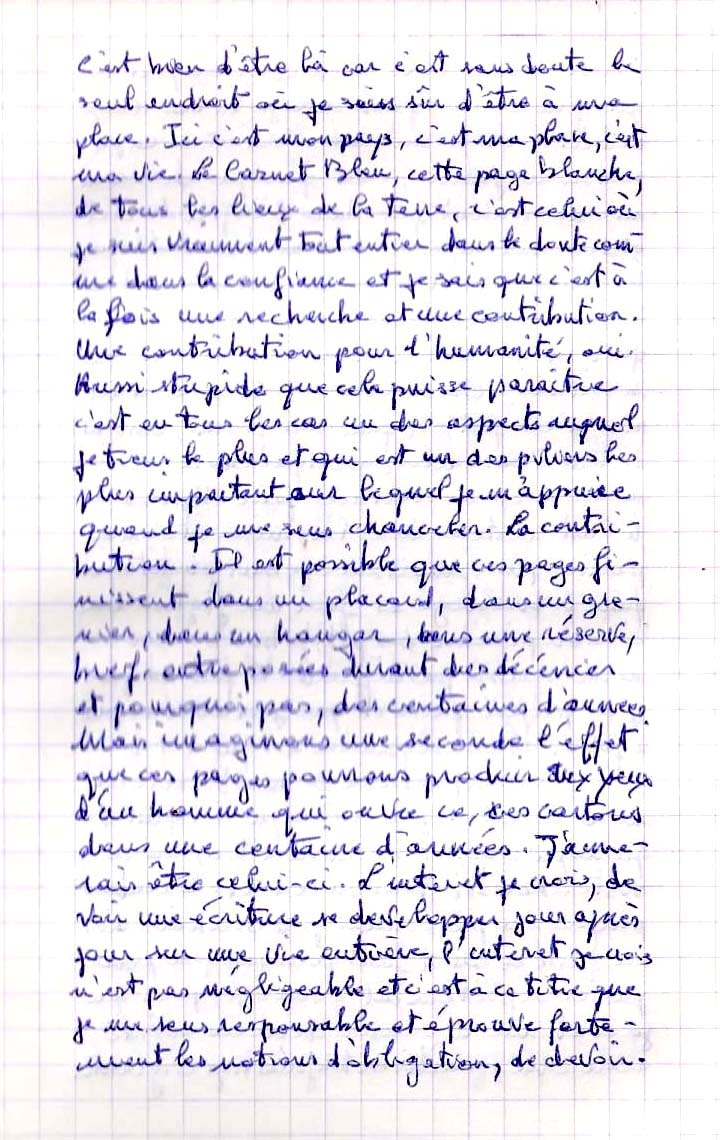 C'est bien d'être là car c'est sans doute le
seul endroit où je suis sûr d'être à ma
place. Ici c'est mon pays, c'est ma place, c'est
ma vie. Le Carnet Bleu, cette page blanche,
de tous les lieux de la Terre, c'est celui où
je suis vraiment tout entier dans le doute com-
me dans la confiance et je sais que c'est à
la fois une recherche et une contribution.
Une contribution pour l'humanité, oui.
Aussi stupide que cela puisse paraître
c'est en tous les cas un des aspects auquel
je tiens le plus et qui est un des piliers les
plus important sur lequel je m'appuie
quand je me sens chanceler. La contri-
bution. Il est possible que ces pages fi-
nissent dans un placard, dans un gre-
nier, dans un hangar, dans une réserve,
bref, entreposées durant des décénies
et pourquoi pas, des centaines d'années.
Mais imaginons une seconde l'effet
que ces pages pourrons produire aux yeux
d'un homme qui ouvre ce, ces cartons
dans une centaine d'années. J'aime-
rais être celui-ci. L'interet je crois, de
voir une écriture se developper jour après
jour sur une vie entière, l'interet je crois
n'est pas négligeable et c'est à ce titre que
je me sens responsable et éprouve forte-
ment les notions d'obligation, de devoir.